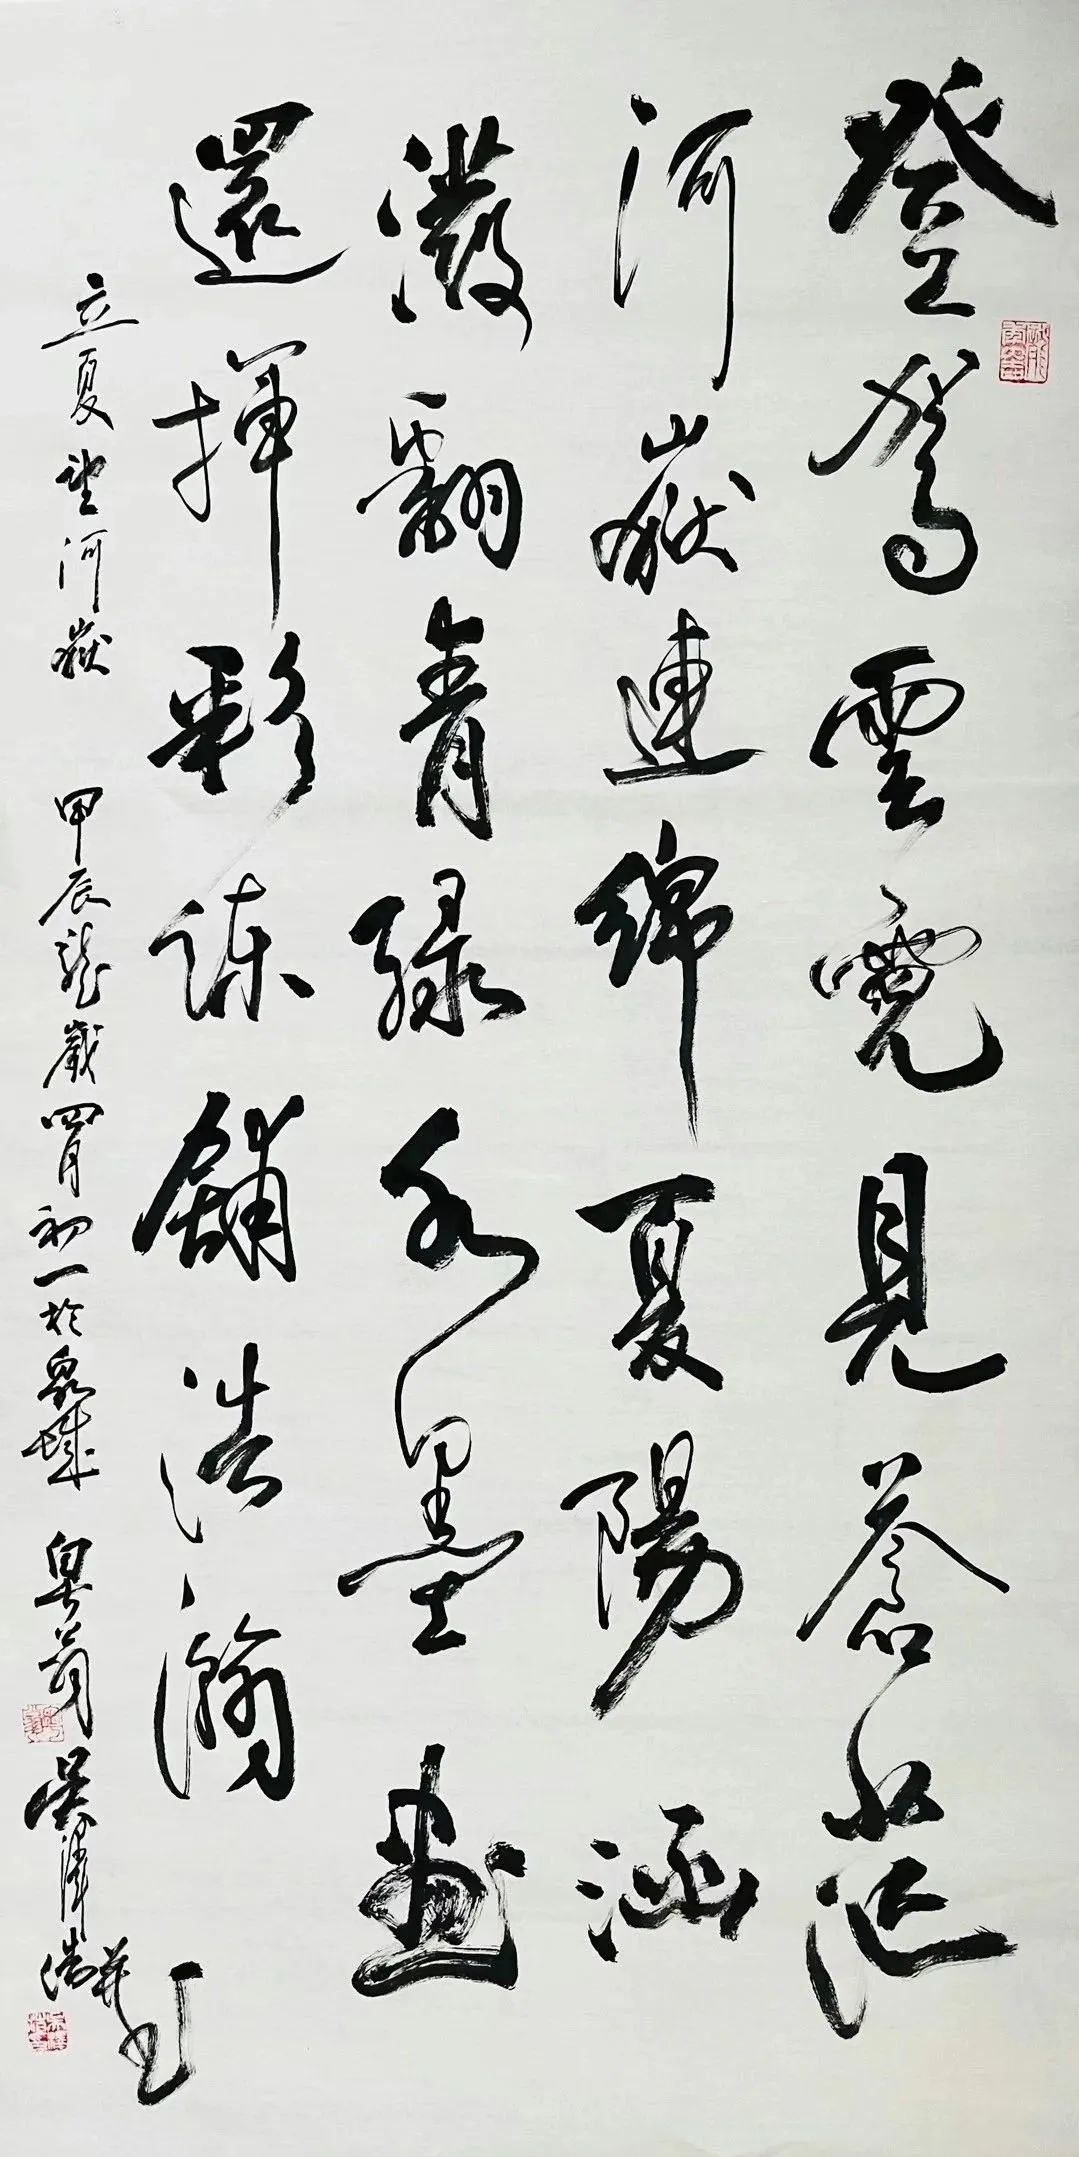 登雲霓見蒼茫
河嶽連綿夏陽涵
潑翻青綠水墨畫
還揮彩练舖浩瀚
立夏望河嶽 甲辰龍歲四月初一於泉城 粤翁 吴澤浩 并书